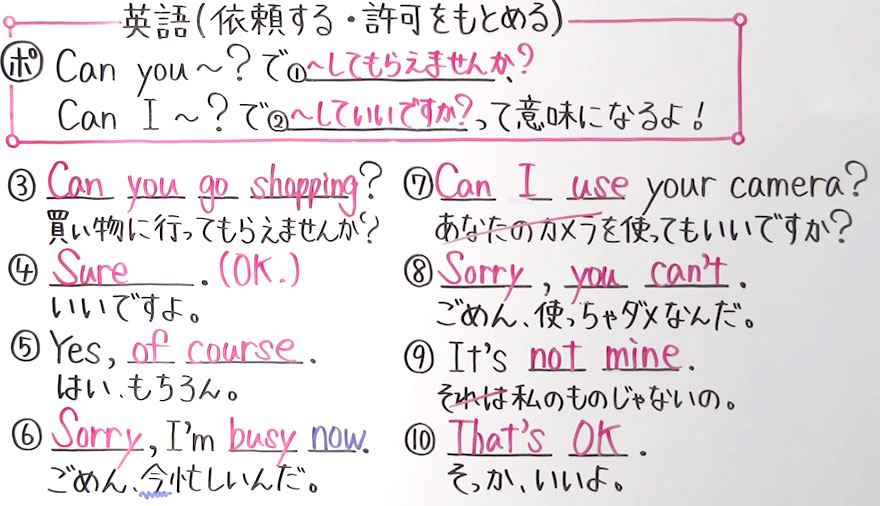 英語(依頼する・許可をもとめる)
ポ Can you ～? で①～してもらえませんか?、
Can I ～? で②～していいですか? って意味になるよ!
③ Can you go shopping?
買い物に行ってもらえませんか?
④ Sure. (OK.)
いいですよ。
⑤ Yes, of course.
はい、もちろん。
⑥ Sorry, I'm busy now.
ごめん、今忙しいんだ。
⑦ Can I use your camera?
あなたのカメラを使ってもいいですか?
⑧ Sorry, you can't.
ごめん、使っちゃダメなんだ。
⑨ It's not mine.
それは私のものじゃないの。
⑩ That's OK.
そっか、いいよ。